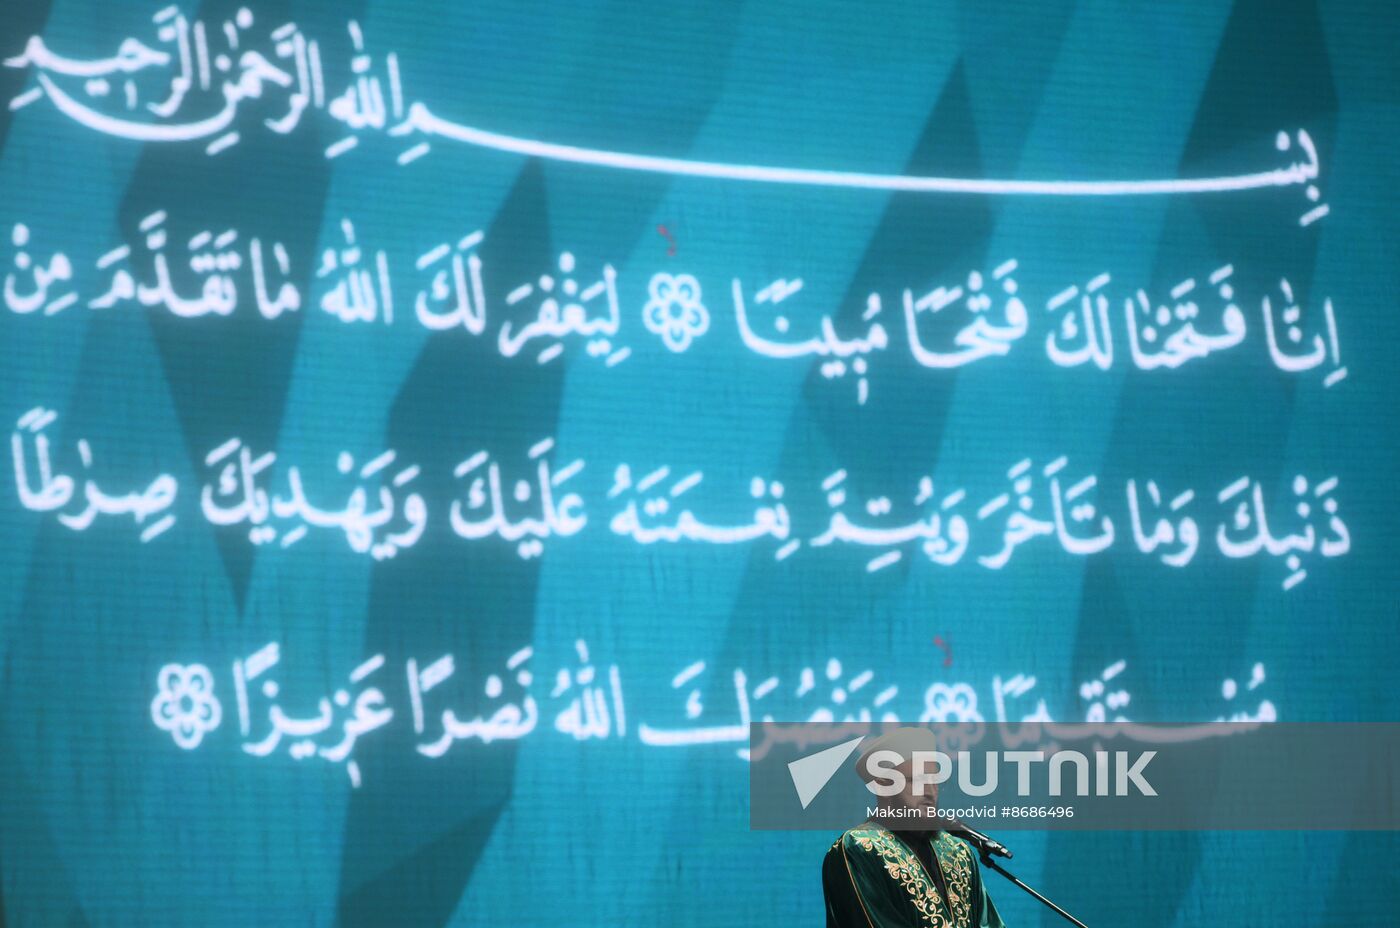 بِسْمِ اللهِ الرَّحْمٰنِ الرَّحِيمِ
اِنَّا فَتَحْنَا لَكَ فَتْحًا مُبِينًا ۙ لِيَغْفِرَ لَكَ اللهُ مَا تَقَدَّمَ مِنْ
ذَنْبِكَ وَمَا تَاَخَّرَ وَيُتِمَّ نِعْمَتَهُ عَلَيْكَ وَيَهْدِيَكَ صِرَاطًا
مُسْتَقِيمًا ۙ وَيَنْصُرَكَ اللهُ نَصْرًا عَزِيزًا
SPUTNIK
Maksim Bogodvid 8686496